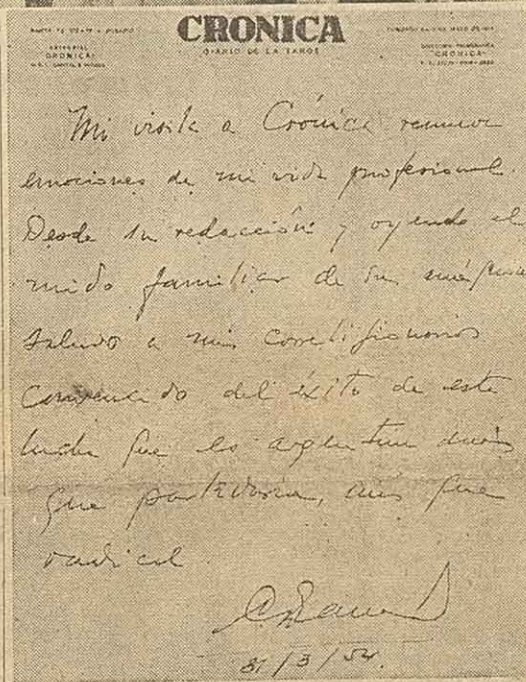 CRONICA
DIARIO DE LA TARDE
EDITORIAL
"CRONICA"
"CRONICA"
Mi visita a Crónica renueva
emociones de mi vida profesional.
Desde su redacción y oyendo el
ruido familiar de su máquina
saludo a mis correligionarios
convencido del éxito de esta
lucha que es argentina
que partidaria, más que
radical
31/3/54.